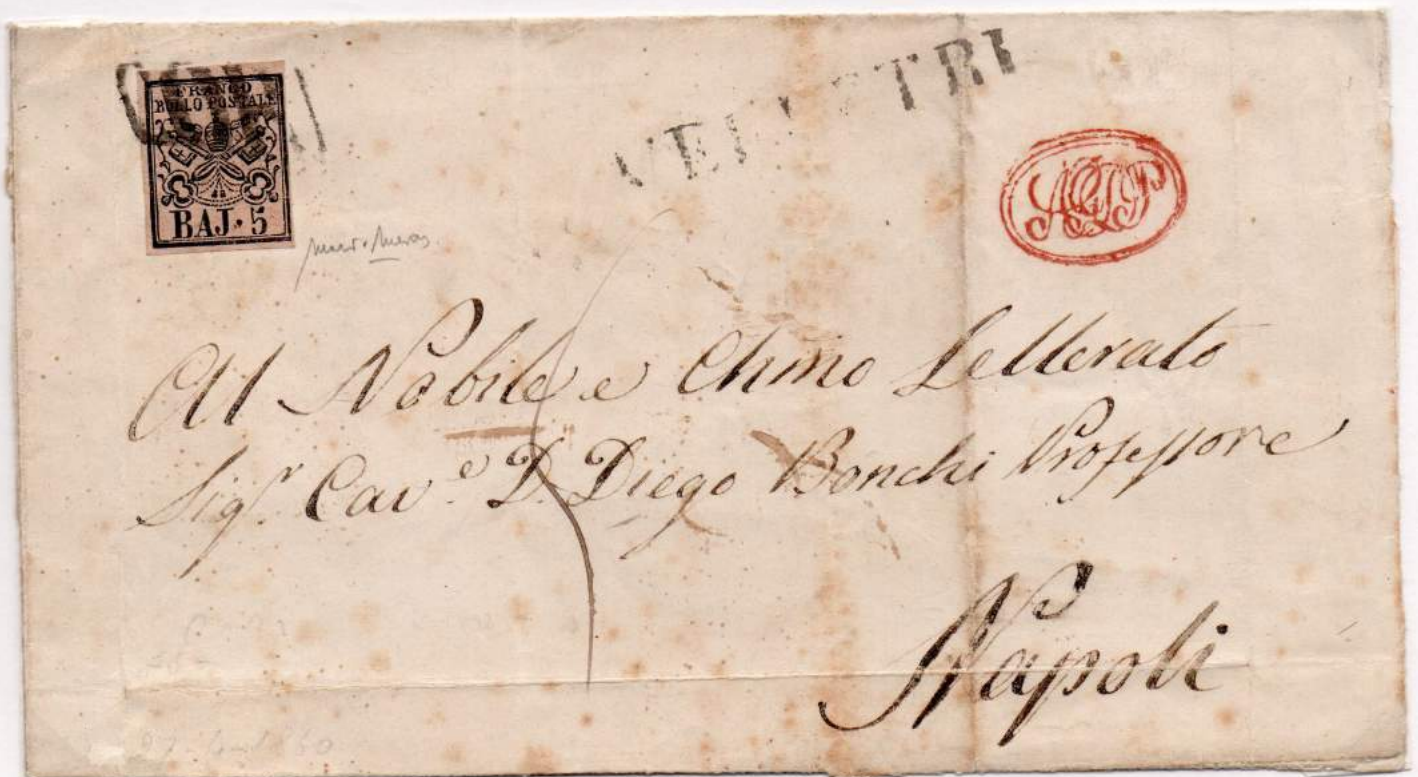 FRANCO
BOLLO POSTALE
BAJ. 5
VELLETRI
AGDP
Al Nobile e Chmo Letterato
Sigr. Cave. D. Diego Bonchi Professore
Napoli